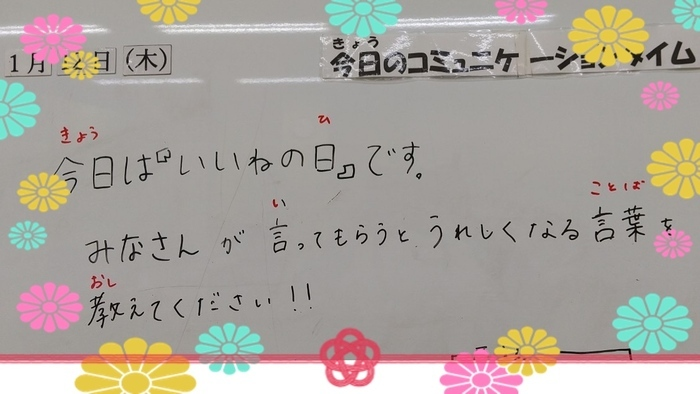 1月12日(木)
きょう
今日のコミュニケーションタイム
きょう ひ
今日は『いいねの日』です。
い ことば
みなさんが言ってもらうと、うれしくなる言葉を
おし
教えてください!!